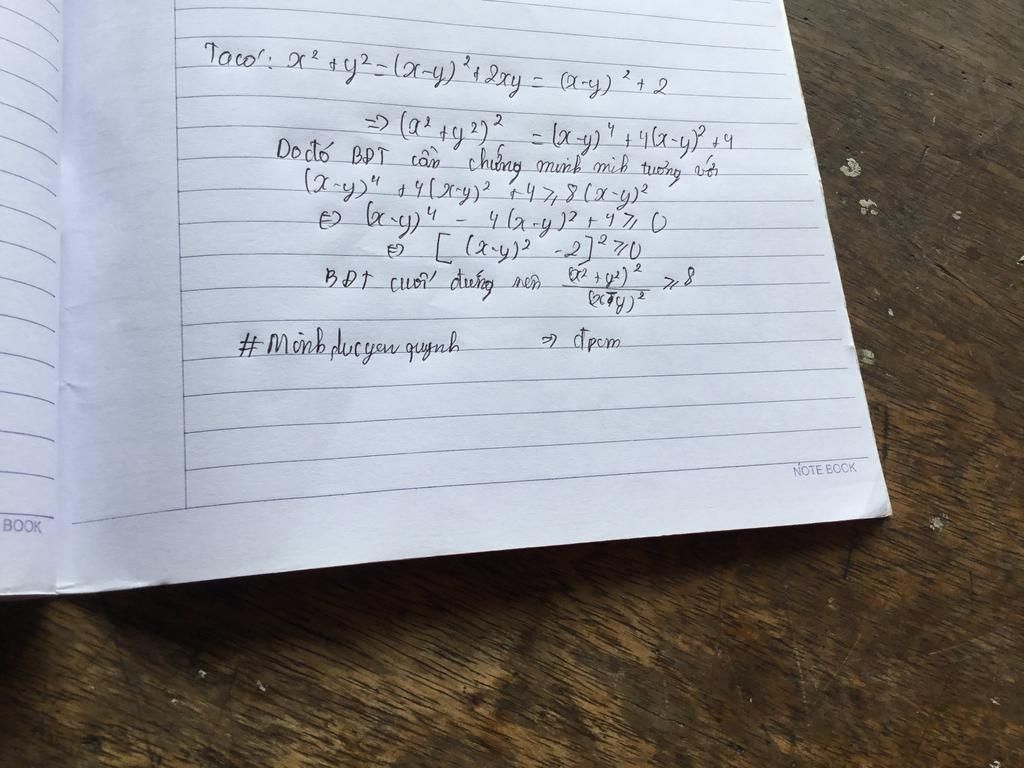 Ta có: x² + y² = (x-y)² + 2xy = (x-y)² + 2
⇒ (x² + y²)² = (x-y)⁴ + 4(x-y)² + 4
Do đó BĐT cần chứng minh tương với
(x-y)⁴ + 4(x-y)² + 4 ≥ 8(x-y)²
⇔ (x-y)⁴ - 4(x-y)² + 4 ≥ 0
⇔ [(x-y)² - 2]² ≥ 0
BĐT cuối đúng nên (x² + y²)² / (x-y)² ≥ 8
# ⇒ đpcm
NOTE BOOK
BOOK